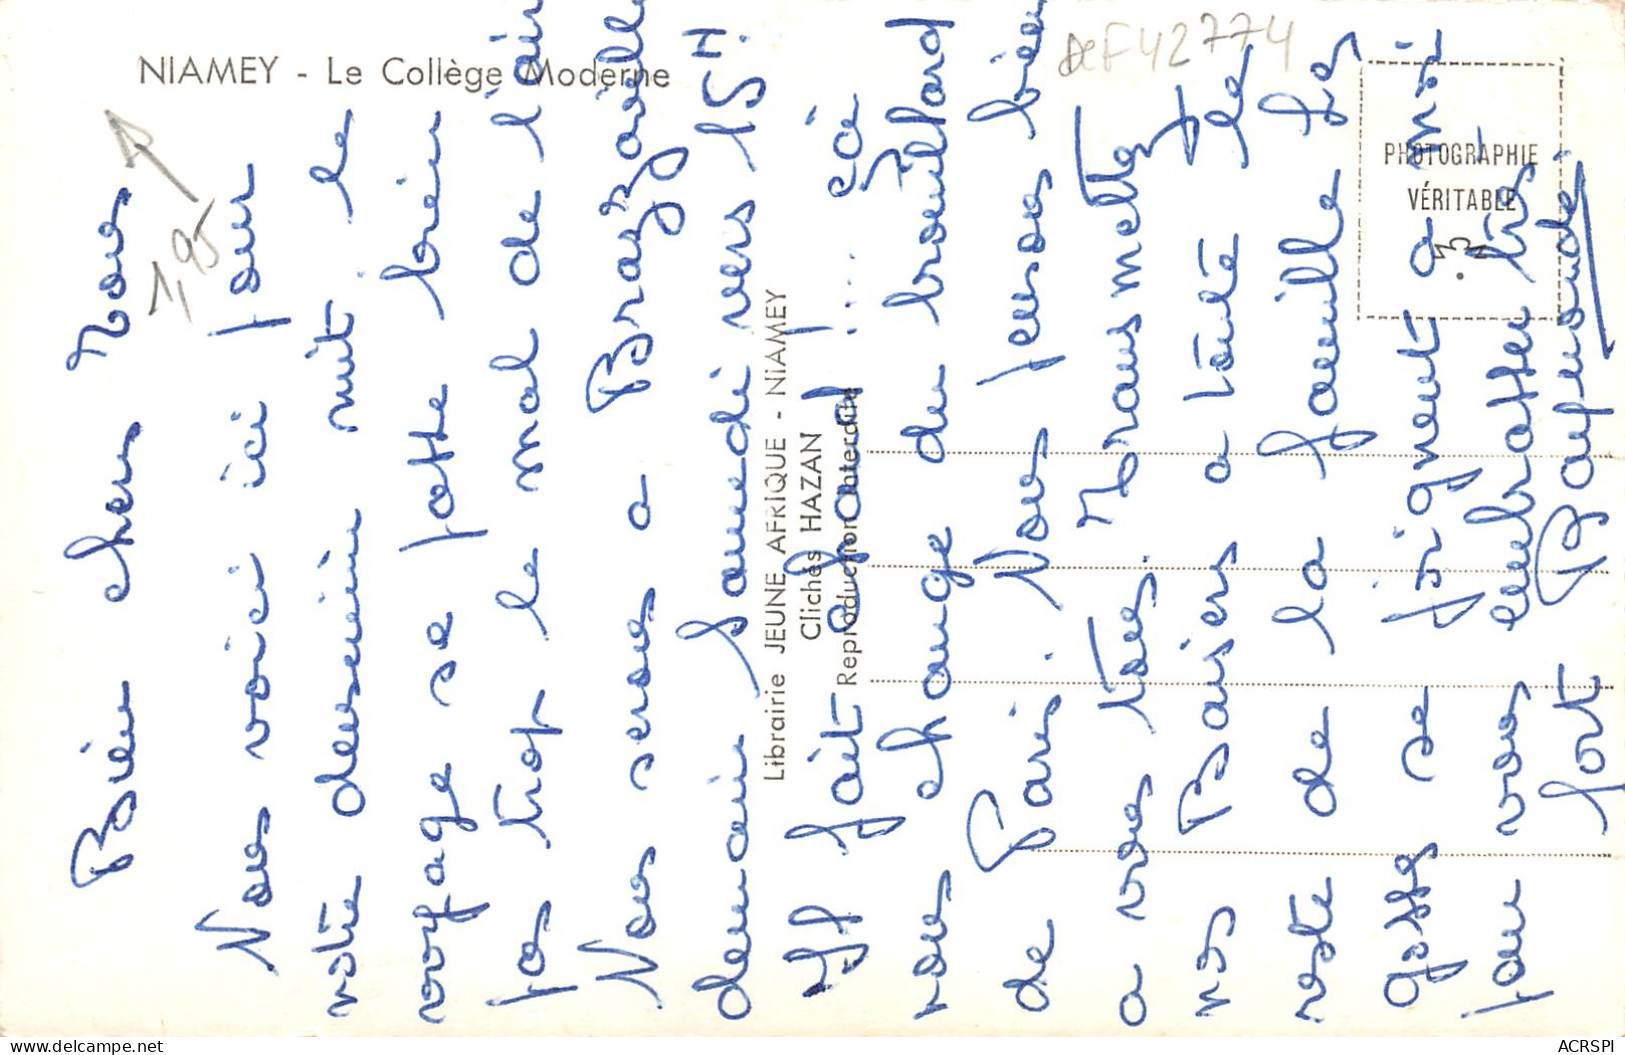 NIAMEY - Le Collège Moderne
AEF42774
1,95
PHOTOGRAPHIE
VÉRITABLE
Librairie JEUNE AFRIQUE - NIAMEY
Clichés HAZAN
Reproduction interdite
Bien chers tous
Nous voici ici pour
notre dernière nuit le
voyage se passe bien
pas trop le mal de l'air
Nous serons a Brazzaville
demain samedi vers 15H.
Il fait chaud !... ça
nous change du brouillard
de Paris. Nous pensons bien
a vous tous. Transmettez
nos Baisers a toute le
reste de la famille les
gosses se joignent a moi
pour vous embrasser très
fort Raymonde
ACRSPI